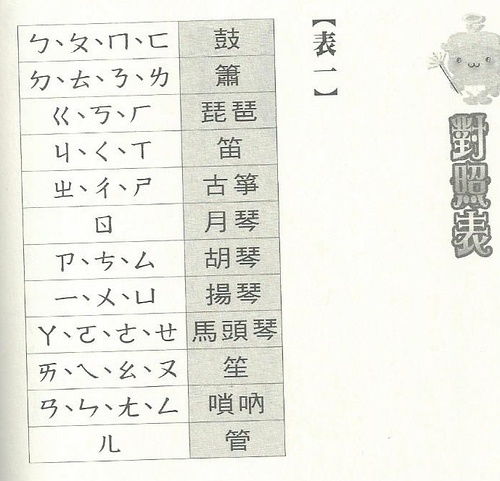 對照表
【表一】
ㄅ、ㄆ、ㄇ、ㄈ 鼓
ㄉ、ㄊ、ㄋ、ㄌ 簫
ㄍ、ㄎ、ㄏ 琵琶
ㄐ、ㄑ、ㄒ 笛
ㄓ、ㄔ、ㄕ 古箏
ㄖ 月琴
ㄗ、ㄘ、ㄙ 胡琴
ㄧ、ㄨ、ㄩ 揚琴
ㄚ、ㄛ、ㄜ、ㄝ 馬頭琴
ㄞ、ㄟ、ㄠ、ㄡ 笙
ㄢ、ㄣ、ㄤ、ㄥ 嗩吶
ㄦ 管